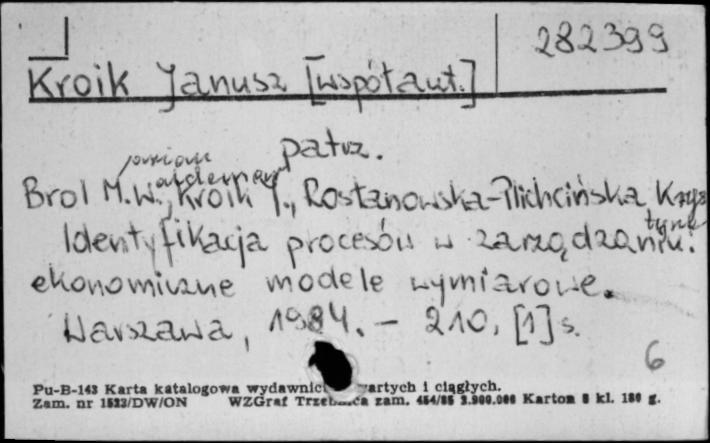 282399
Kroik Janusz [współaut.]
patrz.
Brol M.W., Kroik J., Rostanowska-Plichcińska Krys
tyna
Identyfikacja procesów w zarządzaniu:
ekonomiczne modele wymiarowe.
Warszawa, 1984. – 210, [1] s.
6
Pu-B-143 Karta katalogowa wydawnict zwartych i ciągłych.
Zam. nr 1523/DW/ON WZGraf Trzebnica zam. 454/85 3.900.000 Karton 8 kl. 180 g.